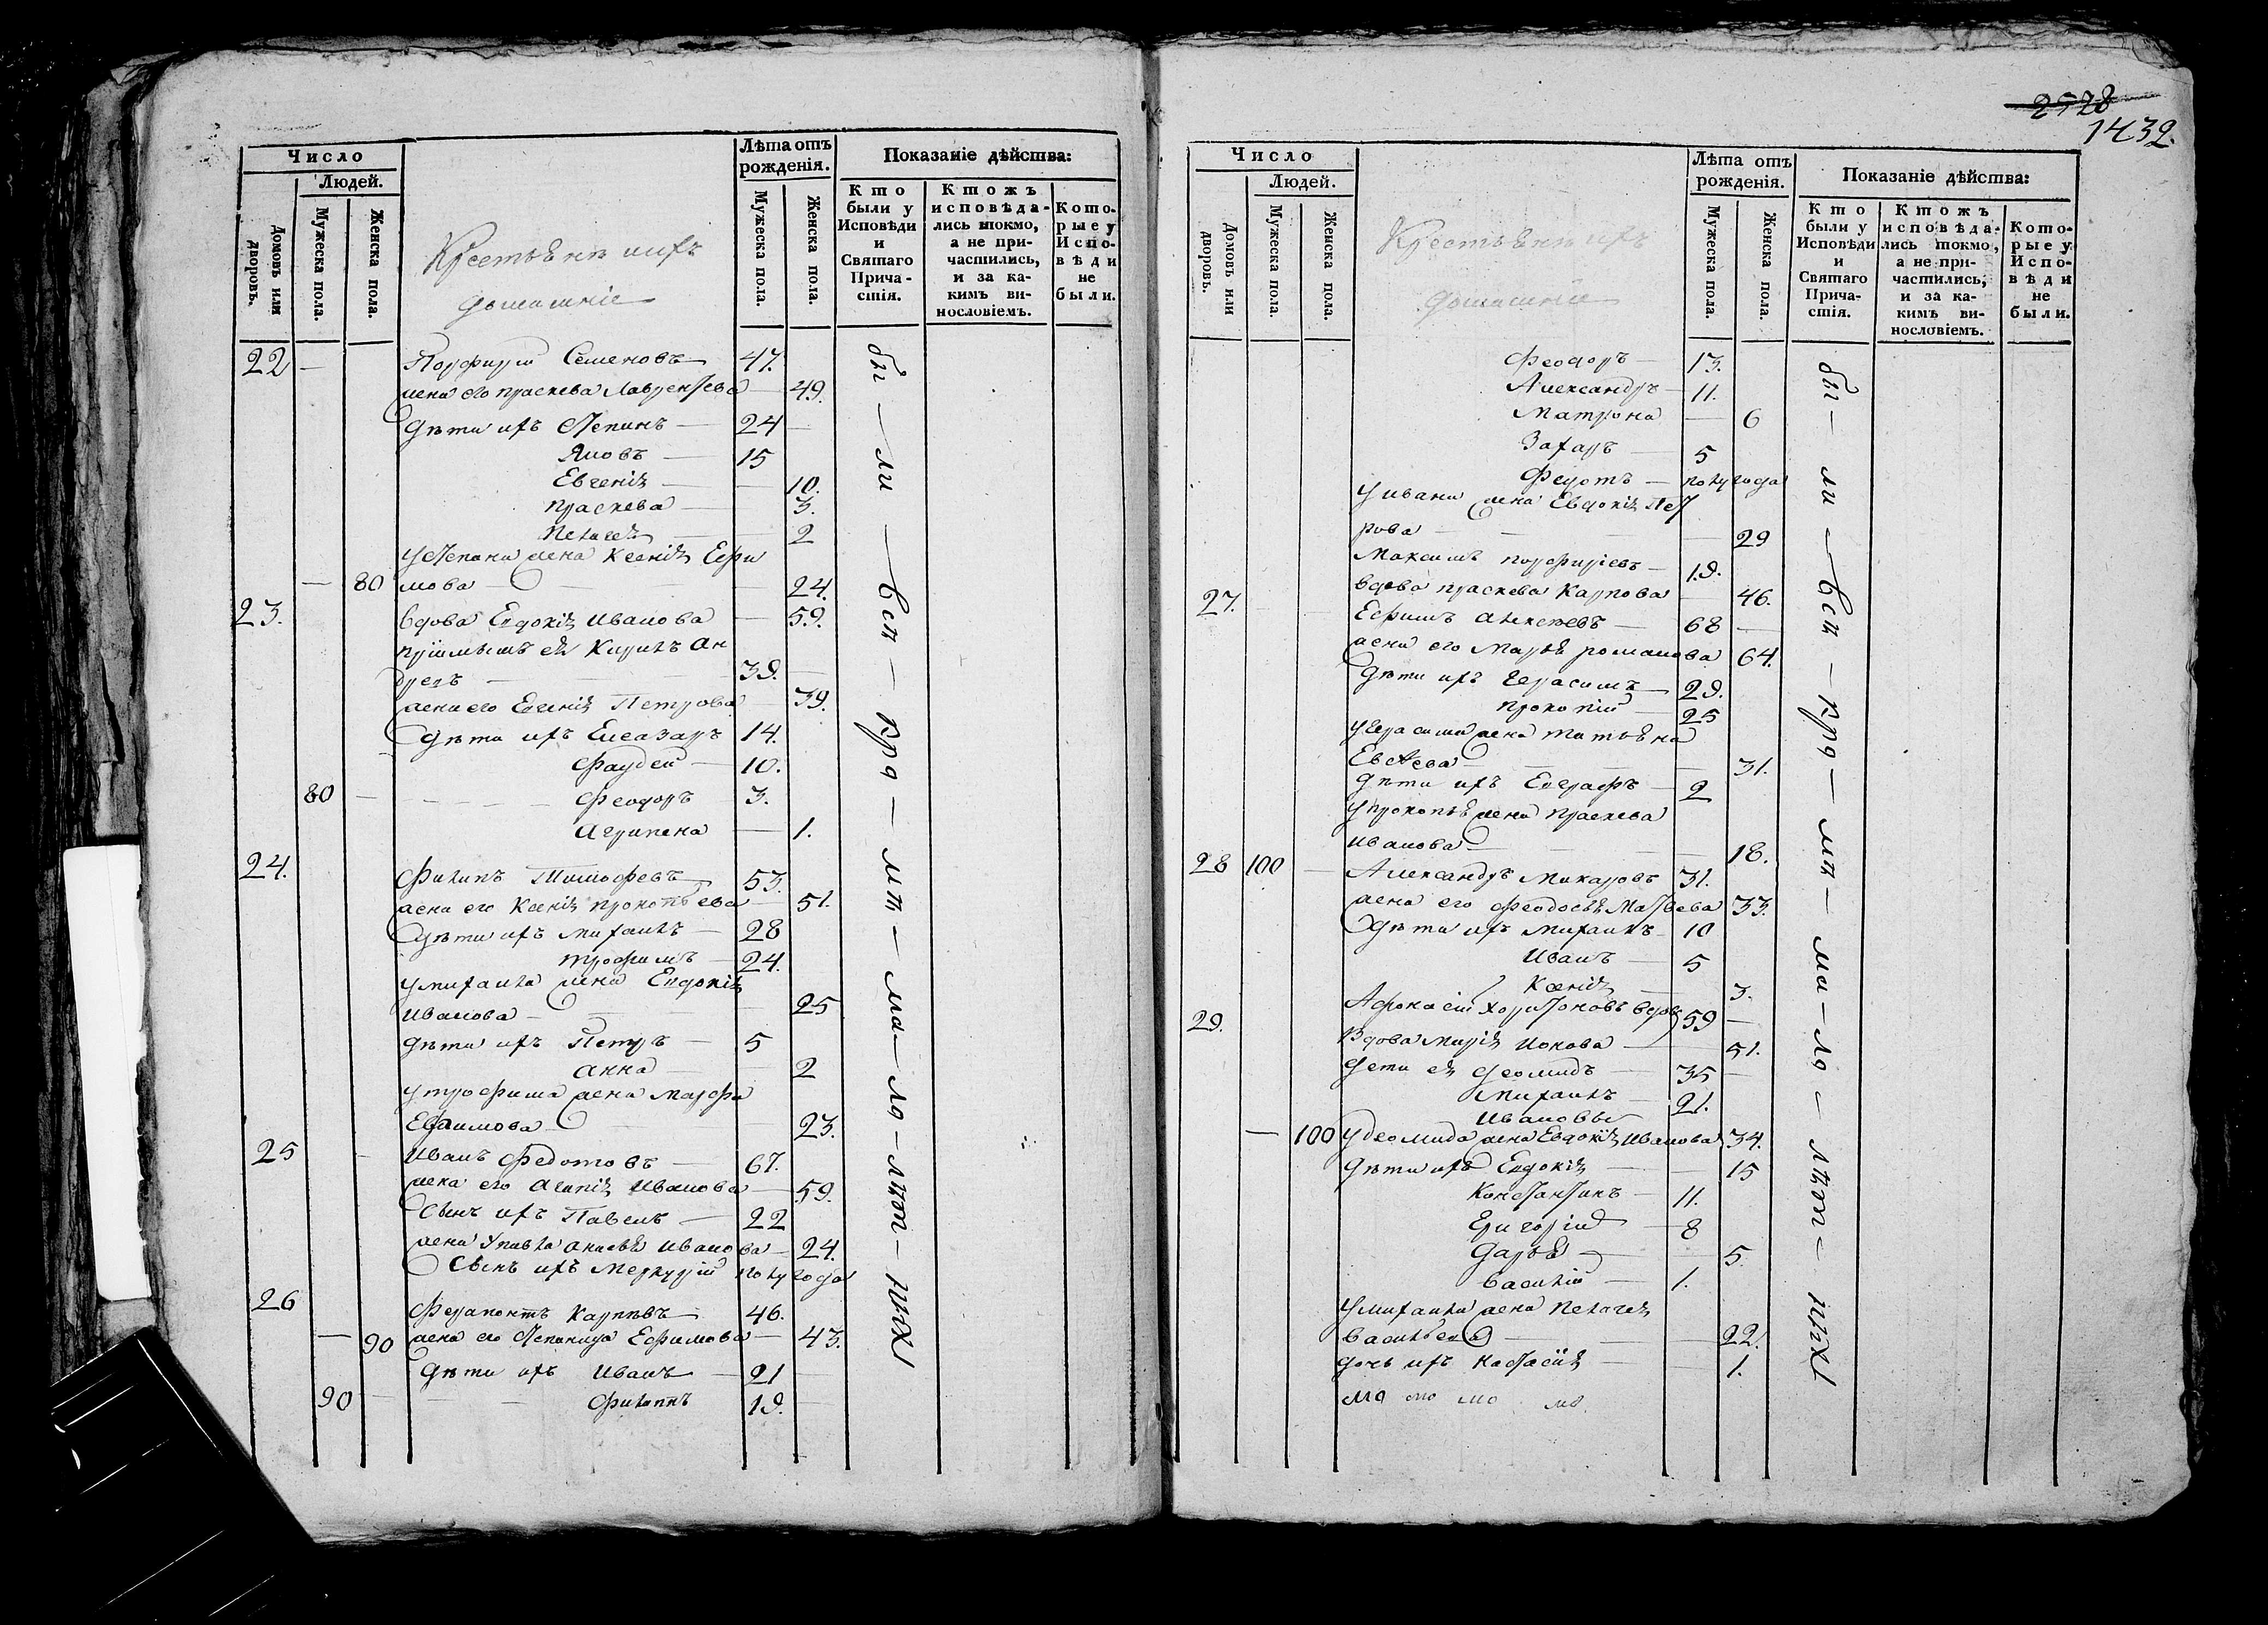 Число
Людей.
Домовъ или дворовъ.
Мужеска пола.
Женска пола.
Крестьяне ихъ
домашніе
Лѣта отъ рожденія.
Мужеска пола.
Женска пола.
Показаніе дѣйства:
Кто были у Исповѣди и Святаго Причастія.
Ктожъ исповѣдались токмо, а не причастились, и за какимъ винословіемъ.
Которые у Исповѣди не были.
22 — Порфирій Семеновъ 47.
жена его праскева Лаврентева — 49.
дѣти ихъ Степанъ — 24 —
Яковъ — 15
Евгенія — 10.
праскева — 3.
Пелагея — 2
у Степана жена Ксенія Ефи
— 80 мова — 24.
23. вдова Евдокія Иванова — 59.
пріимышъ ея Кирилъ Ан
дреевъ — 39. —
жена его Евгенія Петрова — 39.
дѣти ихъ Елеазаръ 14.
Фаддей — 10.
80 — Феодоръ 3.
Агрипена — 1.
24. Филипъ Тимофеевъ 53.
жена его Ксенія прокопьева — 51.
дѣти ихъ михаилъ — 28
трофимъ — 24.
у михаила жена Евдокія
Иванова — 25
дѣти ихъ Петръ — 5
анна — 2
у трофима жена марфа
Ефимова — 23.
25 — Иванъ Федотовъ — 67.
жена его Агапія Иванова — 59.
Сынъ ихъ Павелъ — 22
жена у павла анисья Иванова — 24.
Сынъ ихъ Меркурій полугода
26 Ферапонтъ Карповъ 46.
— 90 жена его Степанида Ефимова — 43.
дѣти ихъ Иванъ — 21 —
90 — Филиппъ 19. —
бы — ли — всп — прд — мт — ма — ло — лѣт — ныхъ
2578
1432.
Число
Людей.
Домовъ или дворовъ.
Мужеска пола.
Женска пола.
Крестьяне ихъ
домашніе
Лѣта отъ рожденія.
Мужеска пола.
Женска пола.
Показаніе дѣйства:
Кто были у Исповѣди и Святаго Причастія.
Ктожъ исповѣдались токмо, а не причастились, и за какимъ винословіемъ.
Которые у Исповѣди не были.
Феодоръ — 13.
Александръ — 11.
Матрона — 6
Захаръ — 5
Федотъ — полугода
у ивана жена Евдокія Пет
рова — 29
Максимъ порфиріевъ — 19.
вдова праскева Карпова — 46.
27. Ефимъ алексѣевъ — 68 —
жена его Марья романова 64.
дѣти ихъ герасимъ — 29.
прокопій — 25
у герасима жена татьяна
— 31.
дѣти ихъ Евграфъ — 2
у прокопья жена праскева
иванова — 18.
28 100 — Александръ Макаровъ 31.
жена его Феодосья Матвева 33.
дѣти ихъ михаилъ — 10
Иванъ — 5
Ксенія — 3.
29. Афонасій Харитоновъ вдовъ 59 —
Вдова марія Ионова — 51.
дети ея Деомидъ — 35 —
михаилъ — 21.
Ивановы
— 100 у деомида жена Евдокія Иванова 34.
дѣти ихъ Евдокія — 15
Константинъ — 11.
Григорій — 8
Дарья — 5.
Василій — 1.
у михаила жена Пелагея
васильева — 22.
дочь ихъ настасія — 1.
мо мо мо мо.
бы — ли — всп — прд — мт — ма — ло — лѣт — ныхъ